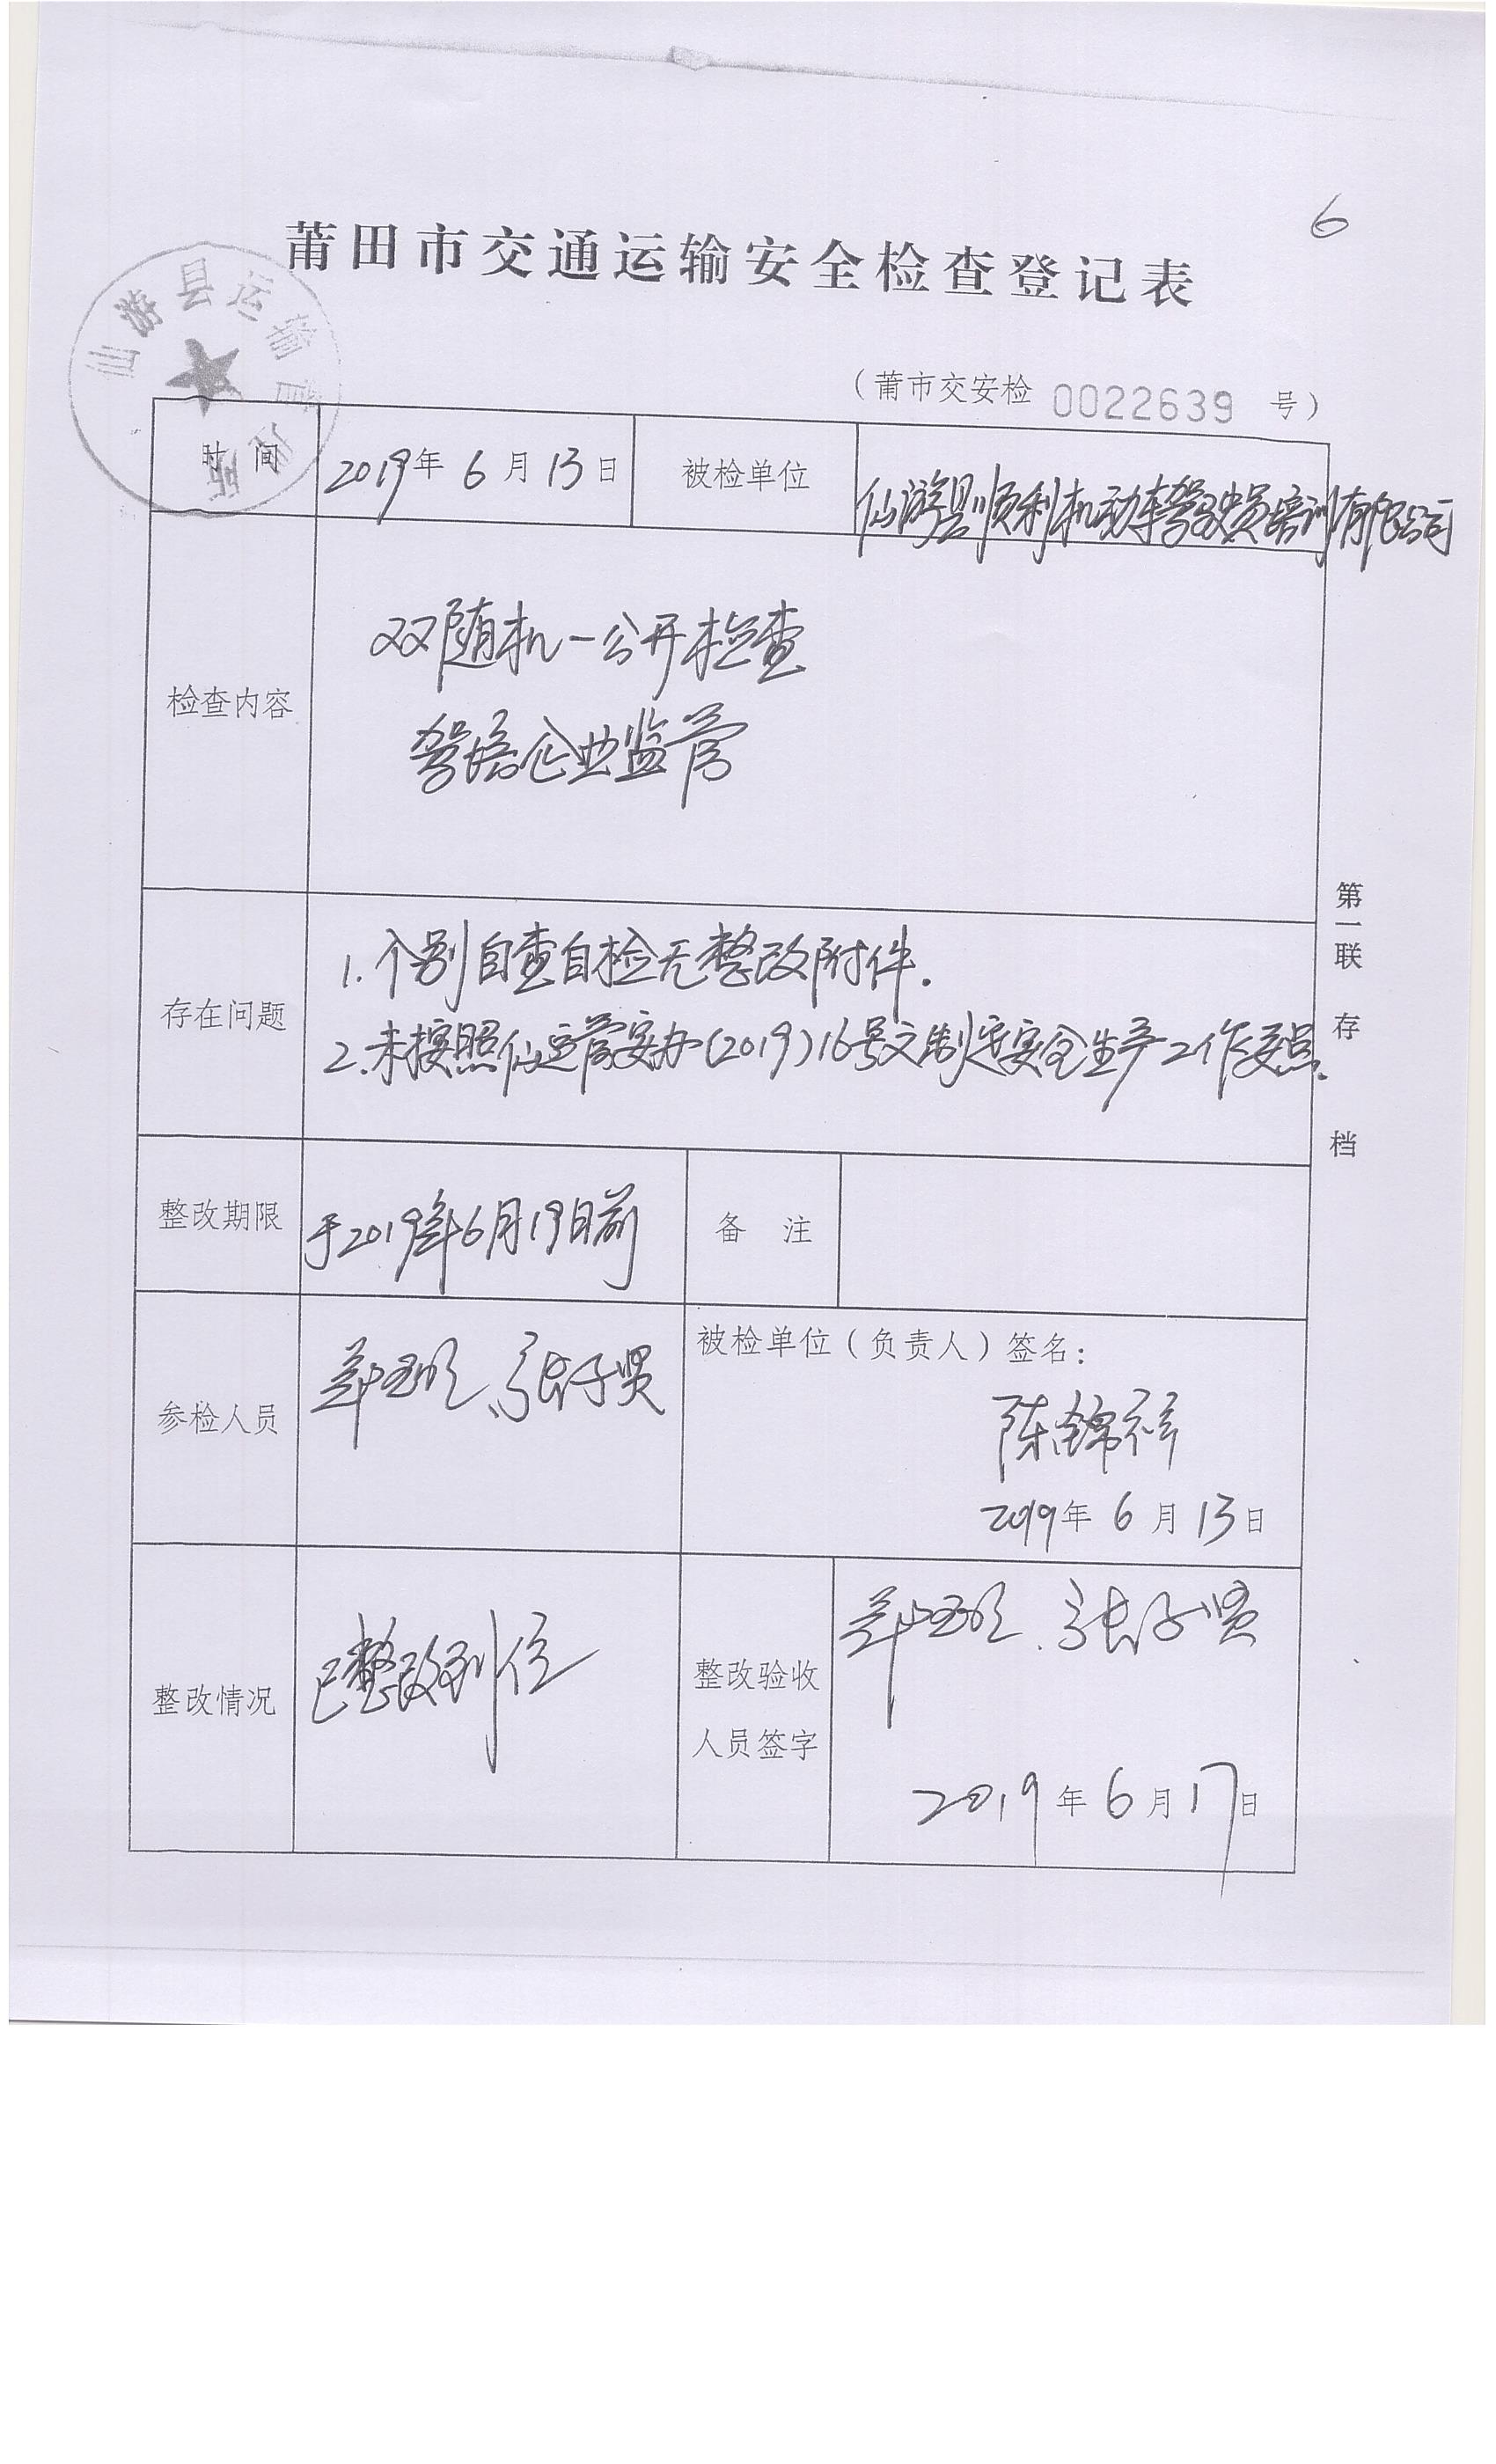 6
莆田市交通运输安全检查登记表
仙游县运输管理所
（莆市交安检 0022639 号）
时间 2019年6月13日 被检单位 仙游县顺利机动车驾驶员培训有限公司
检查内容
双随机一公开检查
驾培企业监管
存在问题
1.个别自查自检无整改附件.
2.未按照仙运管安办(2019)16号文制定安全生产工作要点.
整改期限 于2019年6月19日前 备注
参检人员 张子贤
被检单位（负责人）签名：
陈锦祥
2019年6月13日
整改情况 已整改到位
整改验收
人员签字
张子贤
2019年6月17日
第一联 存 档